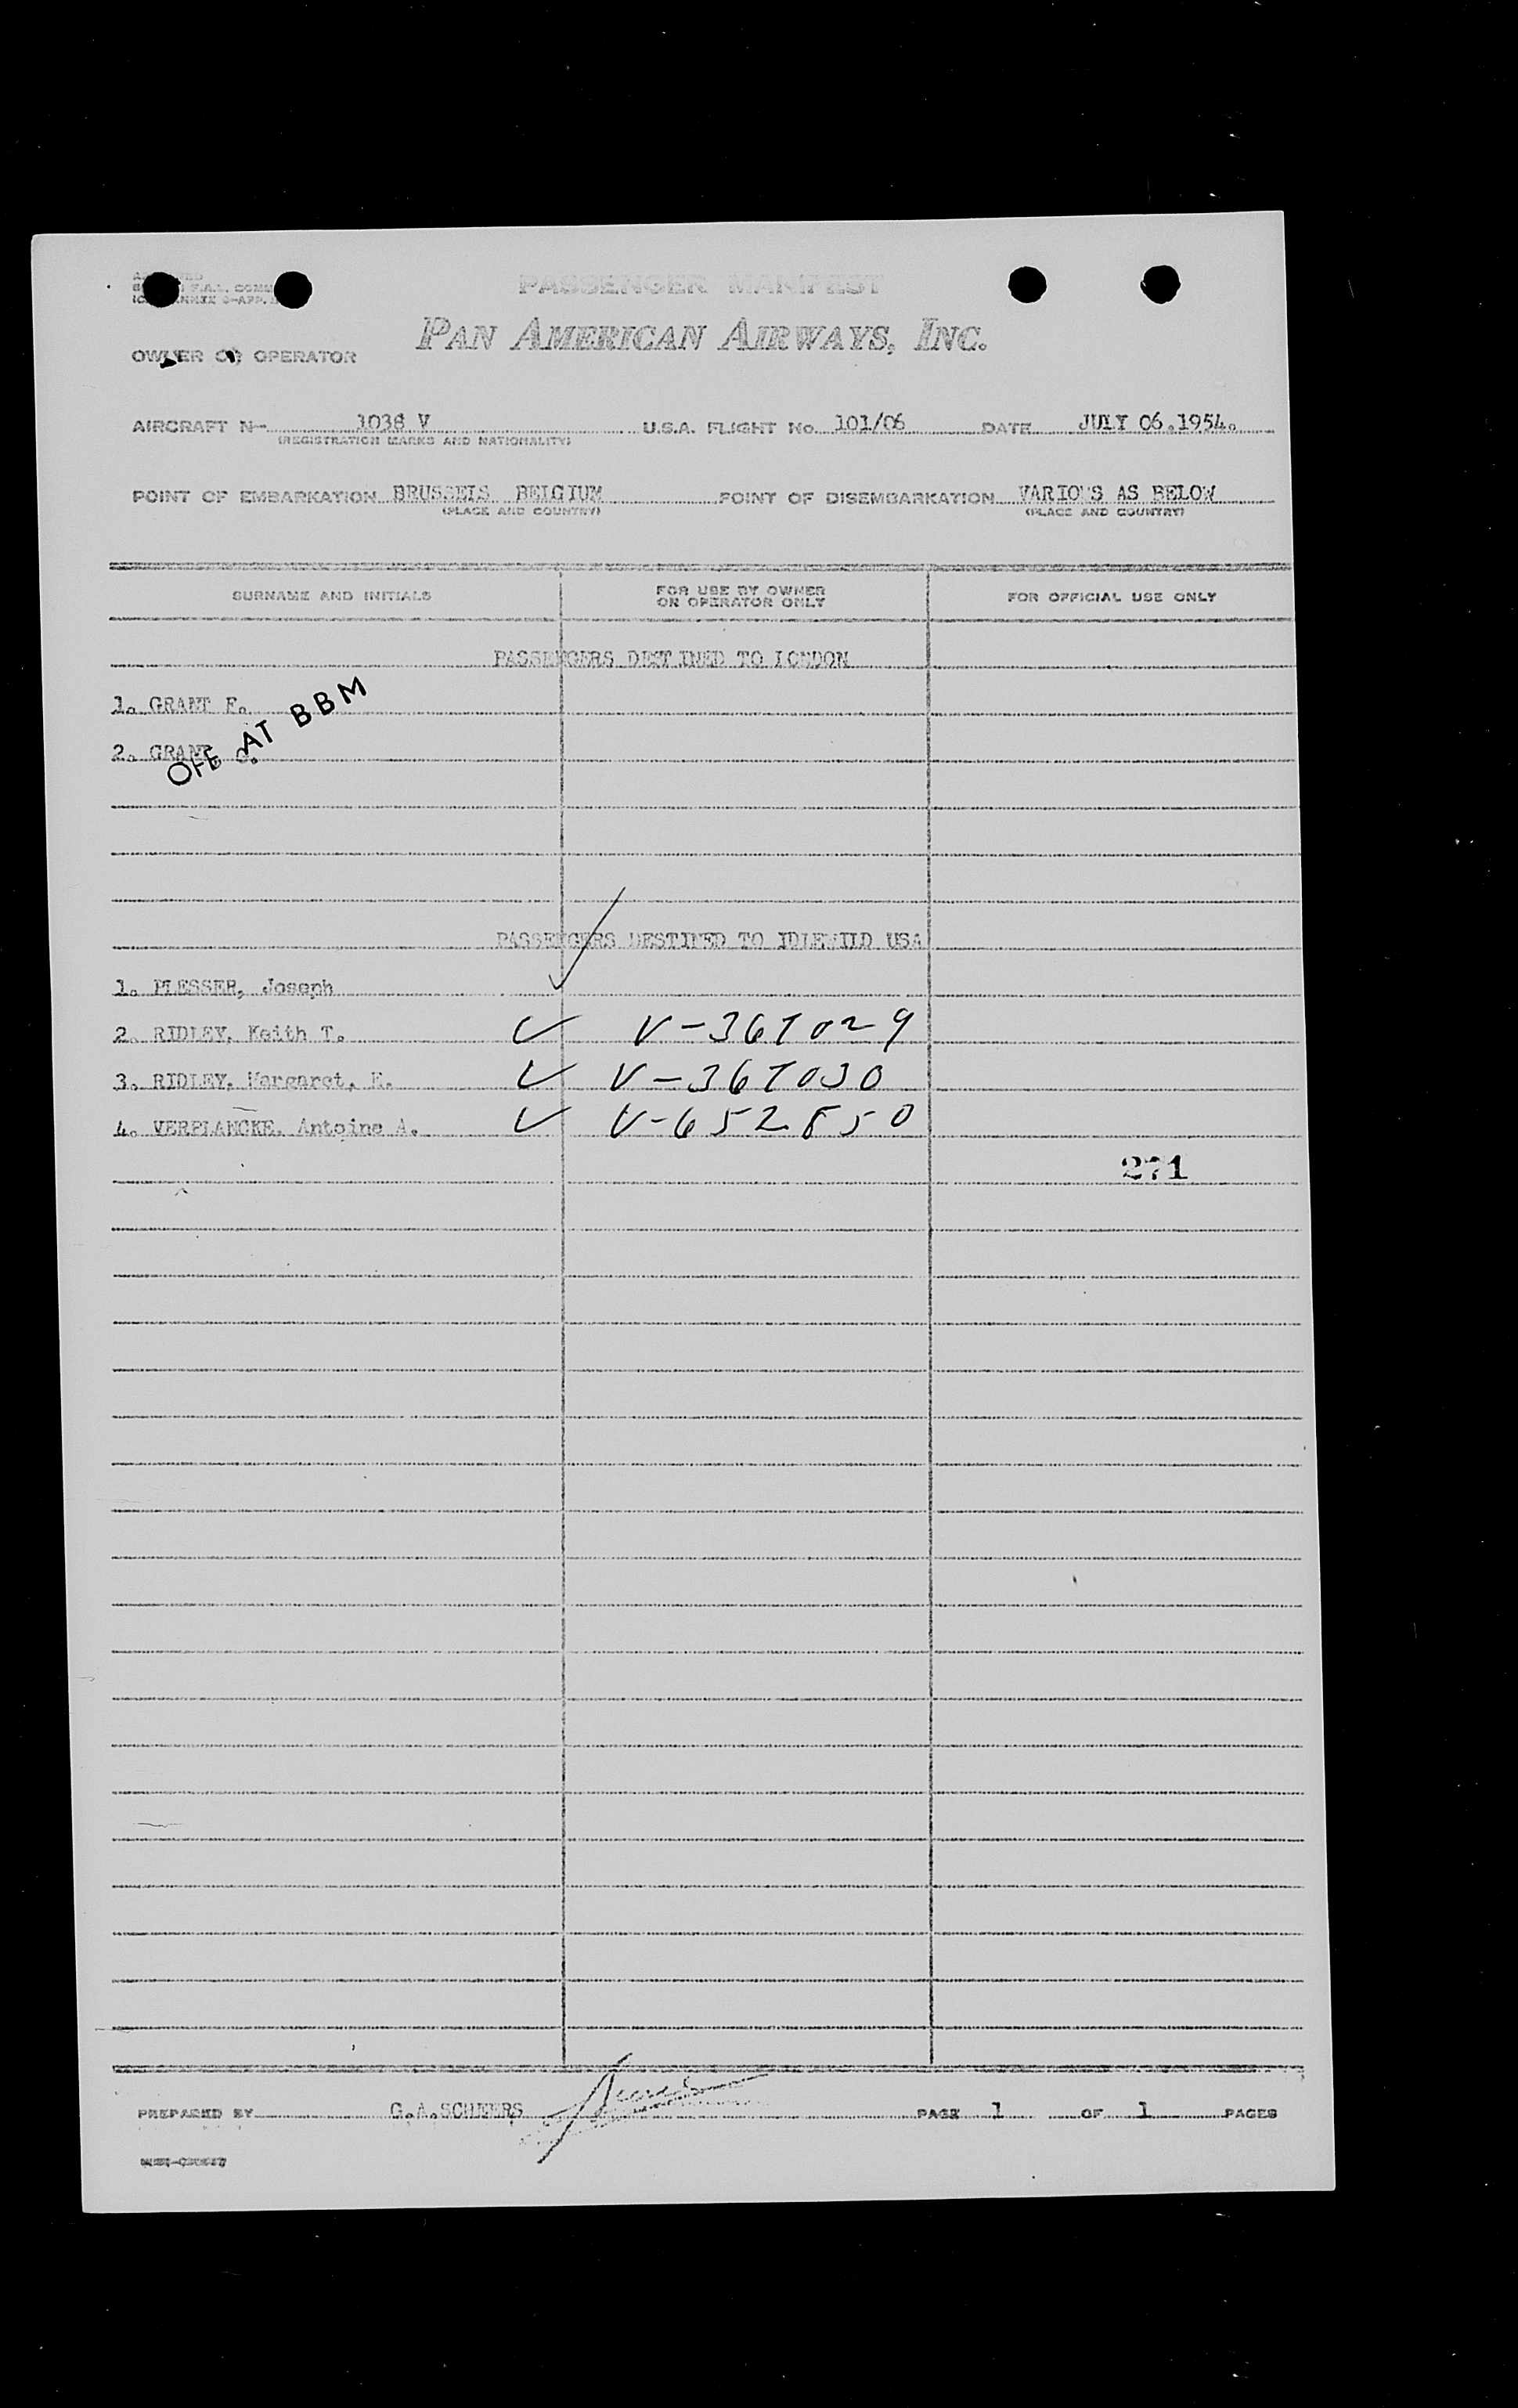 PASSENGER MANIFEST
PAN AMERICAN AIRWAYS, INC.
OWNER OR OPERATOR
AIRCRAFT N- 1038 V U.S.A. FLIGHT No. 101/06 DATE JULY 06.1954.
(REGISTRATION MARKS AND NATIONALITY)
POINT OF EMBARKATION BRUSSELS BELGIUM POINT OF DISEMBARKATION VARIOUS AS BELOW
(PLACE AND COUNTRY) (PLACE AND COUNTRY)
SURNAME AND INITIALS FOR USE BY OWNER OR OPERATOR ONLY FOR OFFICIAL USE ONLY
PASSENGERS DESTINED TO LONDON
1. GRANT F.
2. GRANT
OFF AT BBM
PASSENGERS DESTINED TO IDLEWILD USA
1. PLESSER, Joseph
2. RIDLEY, Keith T. ✓ V-367029
3. RIDLEY, Margaret, E. ✓ V-367030
4. VERPLANCKE, Antoine A. ✓ V-652850
271
PREPARED BY G.A.SCHEERS PAGE 1 OF 1 PAGES